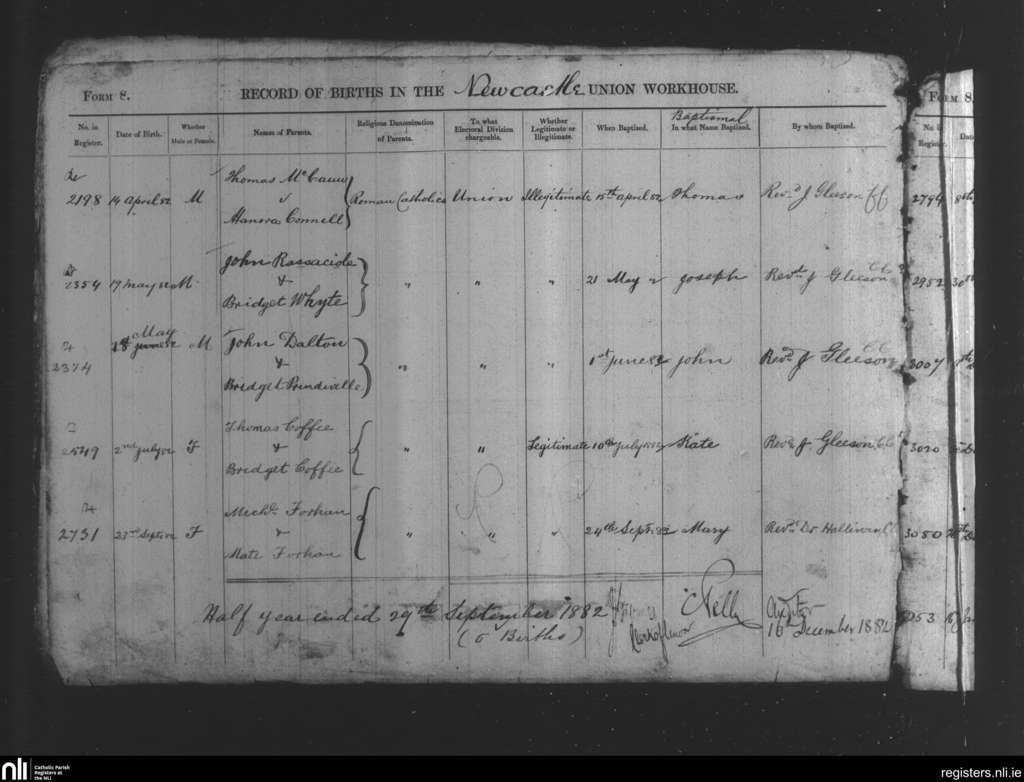 FORM 8. RECORD OF BIRTHS IN THE Newcastle UNION WORKHOUSE.
No. in Register. Date of Birth. Whether Male or Female. Names of Parents. Religious Denomination of Parents. To what Electoral Division chargeable. Whether Legitimate or Illegitimate. When Baptised. Baptismal In what Name Baptised. By whom Baptised.
Thomas
2198 14 April 82 M Roman Catholics Union Illegitimate 15th April 82 Thomas Revd J Gleeson
&
Hanora Connell
John
2354 17 May 82 M " " " 21 May " Joseph Revd J Gleeson CC
&
Bridget Whyte
John Dalton
2374 18 May June 82 M " " " 1st June 82 John Revd J Gleeson CC
&
Bridget Prindiville
Thomas Coffee
2nd July 82 F " " Legitimate 10th July 1882 Kate Revd J Gleeson CC
&
Bridget Coffee
Michl Forhan
2731 23rd Sept 82 F " " " 24th Sept 82 Mary Revd Dr
&
Kate Forhan
Half year ended 29th September 1882
(5 Births)
Clerk of Union
Auditor
16 December 1882
FORM 8.
No. in Register. Date
2794 8th
2952 30th
3007
3020
3050
nli Catholic Parish
Registers at
the NLI
registers.nli.ie